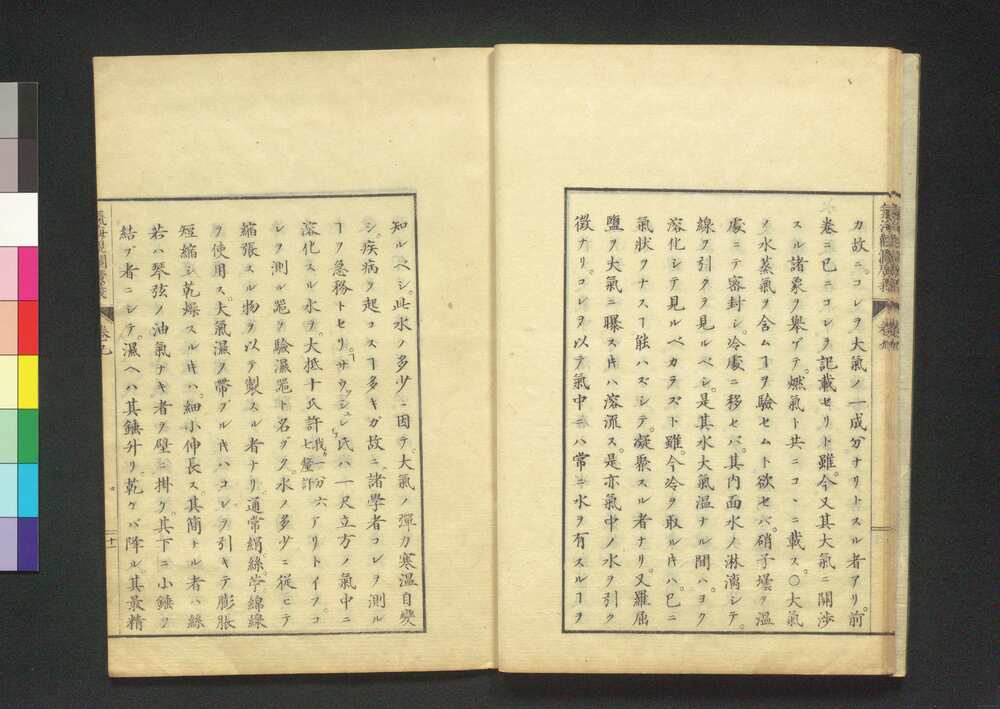 カ故ニ。コレヲ大氣ノ一成分ナリトスル者アリ。前
卷ニ已ニコレヲ記載セリト雖。今又其大氣ニ關渉
スル諸象ヲ擧ゲテ。燃氣ト共ニコヽニ載ス。○大氣
ノ水蒸氣ヲ含ムヿヲ驗セムト欲セバ。硝子壜ヲ温
處ニテ密封シ。冷處ニ移セバ。其内面水ノ淋漓シテ。
線ヲ引クヲ見ルベシ。是其水大氣温ナル間ハ。ヨク
溶化シテ見ルベカラズト雖。今冷ヲ取ルキハ。已ニ
氣状ヲナスヿ能ハズシテ。凝聚スル者ナリ。又羅屈
鹽ヲ大氣ニ曝スキハ溶流ス。是亦氣中ノ水ヲ引ク
徴ナリ。コレヲ以テ氣中ニハ常ニ水ヲ有スルヿヲ
知ルベシ。此水ノ多少ニ因テ。大氣ノ彈力寒温自變
シ。疾病ヲ起コスヿ多キガ故ニ。諸學者コレヲ測ル
ヿヲ急務トセリ。サウッシュレ氏ハ一尺立方ノ氣中ニ
溶化スル水ヲ。大抵十氏許我一分七釐許六アリトイフ。コ
レヲ測ル噐ヲ驗濕噐ト名ヅク。水ノ多少ニ從ヒテ
縮張スル物ヲ以テ製スル者ナリ。通常絹絲。学綿線
ヲ使用ス。大氣濕ヲ帶ブルキハコレヲ引キテ膨脹
短縮シ乾燥スルキハ。細小伸長ス。其簡ナル者ハ絲
若ハ琴弦ノ油氣ナキ者ヲ壁ニ掛ケ。其下ニ小錘ヲ
結ブ者ニシテ。濕ヘハ其錘升リ。乾ケバ降ル。其最精
氣海觀瀾廣義
卷九
十一